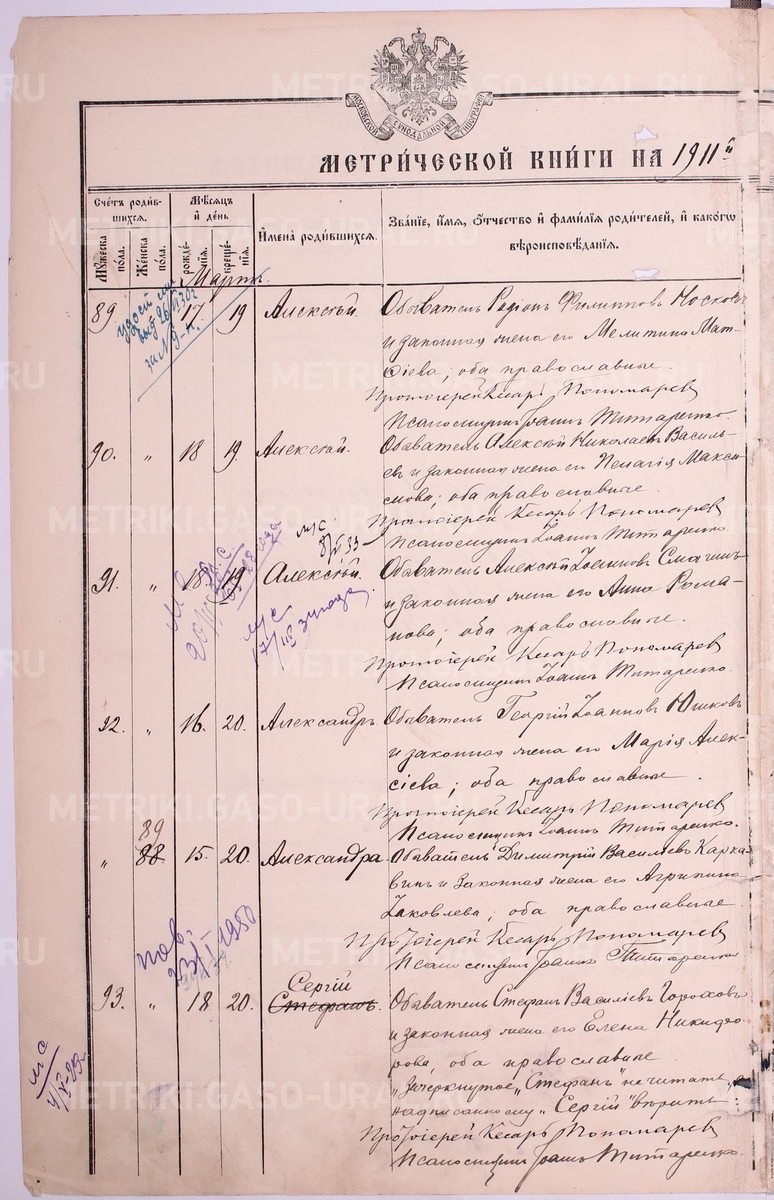 МОСКОВСКОЙ СѴНОДАЛЬНОЙ ТИПОГРАФІИ
МЕТРИ́ЧЕСКОЙ КНИ́ГИ НА 1911й
Сче́тъ роди́вшихся.
Мѣ́сяцъ и҆ де́нь
И҆мена̀ роди́вшихся.
Зва́нїе, и҆́мя, ѻ҆́тчество и҆ фами́лїя роди́телей, и҆ како́гѡ вѣроисповѣ́данїя.
Мꙋ́жеска по́ла.
Же́нска по́ла.
рожде́нїя.
креще́нїя.
Мартъ.
89 17 19 Алексѣй. Обыватель Родіон Филиппов Носковъ
и законная жена его Мелитина Мат-
ѳіева; оба православные.
Протоіерей Кесарь Пономарев
Псаломщикъ Іоаннъ Титаренко.
90. „ 18 19 Алексѣй. Обыватель Алексѣй Николаевъ Василь-
евъ и законная жена его Пелагія Макси-
мова; оба православные.
Протоіерей Кесарь Пономарев
Псаломщикъ Іоаннъ Титаренко
91. „ 18 19 Алексѣй. Обыватель Алексѣй Іоанновъ Смагинъ
и законная жена его Анна Рома-
нова; оба православные.
Протоіерей Кесарь Пономарев
Псаломщикъ Іоаннъ Титаренко.
92. „ 16. 20. Александръ. Обыватель Георгій Іоанновъ Юшковъ
и законная жена его Марія Алек-
сіева; оба православные.
Протоіерей Кесарь Пономарев
Псаломщикъ Іоаннъ Титаренко.
89
„ 88 15. 20. Александра. Обыватель Димитрій Василіевъ Карка-
винъ и законная жена его Агрипина
Іаковлева; оба православные
Протоіерей Кесарь Пономарев
Псаломщикъ Іоаннъ Титаренко
пов.
23/I 1950
Сергій
93. „ 18 20. Стефанъ. Обыватель Стефанъ Василіевъ Гороховъ
и законная жена его Елена Никифо-
рова, оба православные
„Зачеркнутое „Стефанъ" не читать, а
надписанному „Сергій" вѣрить
Протоіерей Кесарь Пономарев
Псаломщикъ Іоаннъ Титаренко
METRIKI.GASO-URAL.RU